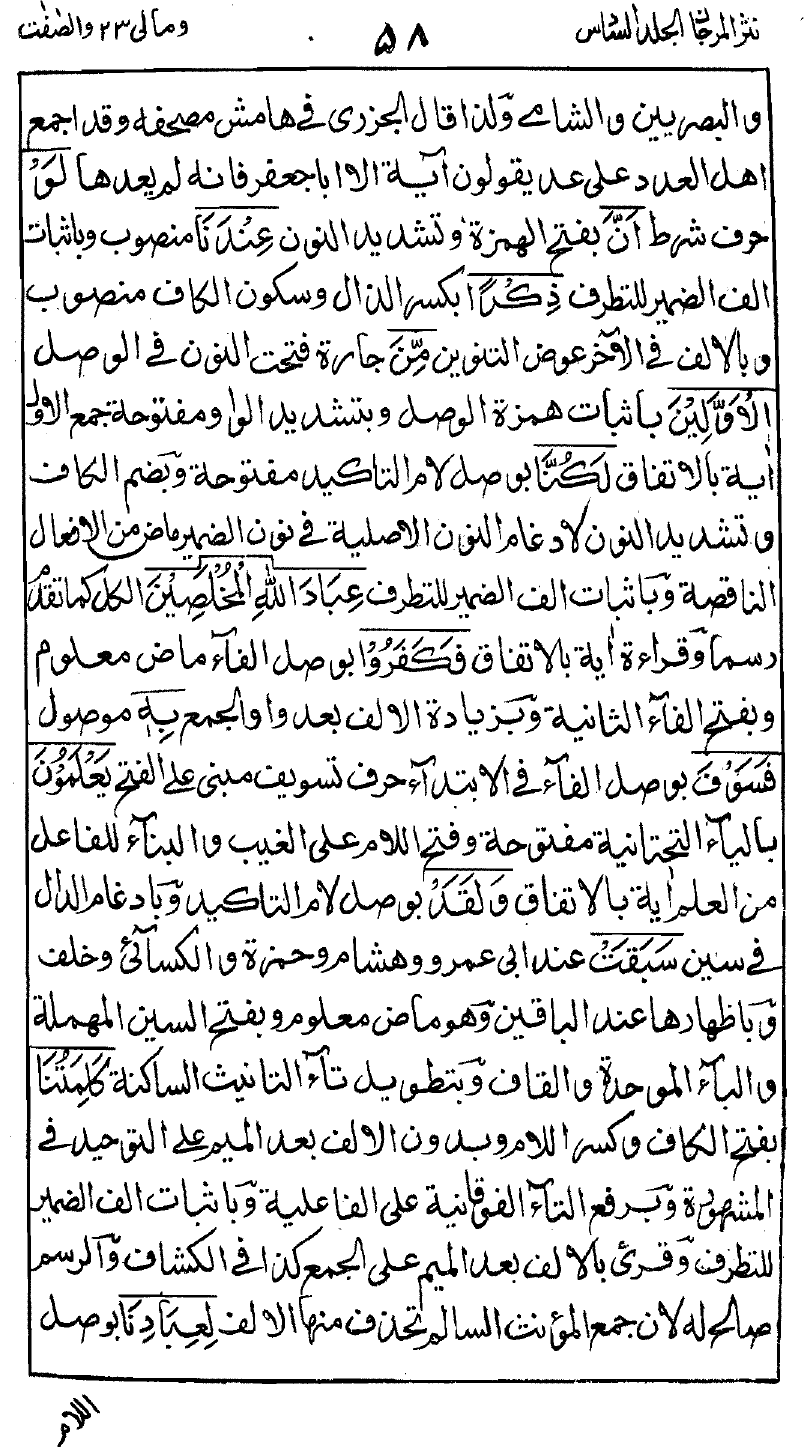 نثر المرجان الجلد السادس ۵۸ ومالى ٢٣ والصّٰفّٰت
والبصريين والشامے وّلذا قال الجزرى فے هامش مصحفه وقد اجمع
اهل العدد على عد يقولون اٰية الا ابا جعفر فانه لم يعدها لَوْ
حرف شرط اَنَّ بفتح الهمزة وتشديد النون عِنْدَنَا منصوب وباثبات
الف الضمير للتطرف ذِكْرًا بكسر الذال وسكون الكاف منصوب
وبالالف فے الاٰخر عوض التنوين مِّنَ جارة فتحت النون فے الوصل
الْاَوَّلِيْنَ باثبات همزة الوصل وبتشديد الواو مفتوحة جمع الاول
اٰية بالاتفاق لَكُنَّا بوصل لام التاكيد مفتوحة وّبضم الكاف
وتشديد النون لادغام النون الاصلية فے نون الضمير ماض من الافعال
الناقصة وّباثبات الف الضمير للتطرف عِبَادَ اللّٰهِ الْمُخْلَصِيْنَ الكل كما تقدم
رسما وّقراءة اٰية بالاتفاق فَكَفَرُوْا بوصل الفآء ماض معلوم
وبفتح الفآء الثانية وّبزيادة الالف بعد واو الجمع بِهٖ موصول
فَسَوْفَ بوصل الفآء فے الابتدآء حرف تسويف مبنى على الفتح يَعْلَمُوْنَ
باليآء التحتانية مفتوحة وفتح اللام على الغيب والبنآء للفاعل
من العلم اٰية بالاتفاق وَلَقَدْ بوصل لام التاكيد وّبادغام الدال
فے سين سَبَقَتْ عند ابى عمرو وهشام وحمزة والكسآئى وخلف
وّباظهارها عند الباقين وّهو ماض معلوم وبفتح السين المهملة
والبآء الموحدة والقاف وّبتطويل تآء التانيث الساكنة كَلِمَتُنَا
بفتح الكاف وكسر اللام وبدون الالف بعد الميم على التوحيد فے
المشهورة وّبرفع التآء الفوقانية على الفاعلية وّباثبات الف الضمير
للتطرف وّقرئ بالالف بعد الميم على الجمع كذا فے الكشاف وّالرسم
صالح له لان جمع المؤنث السالم تحذف منها الالف لِعِبَادِنَا بوصل
اللام